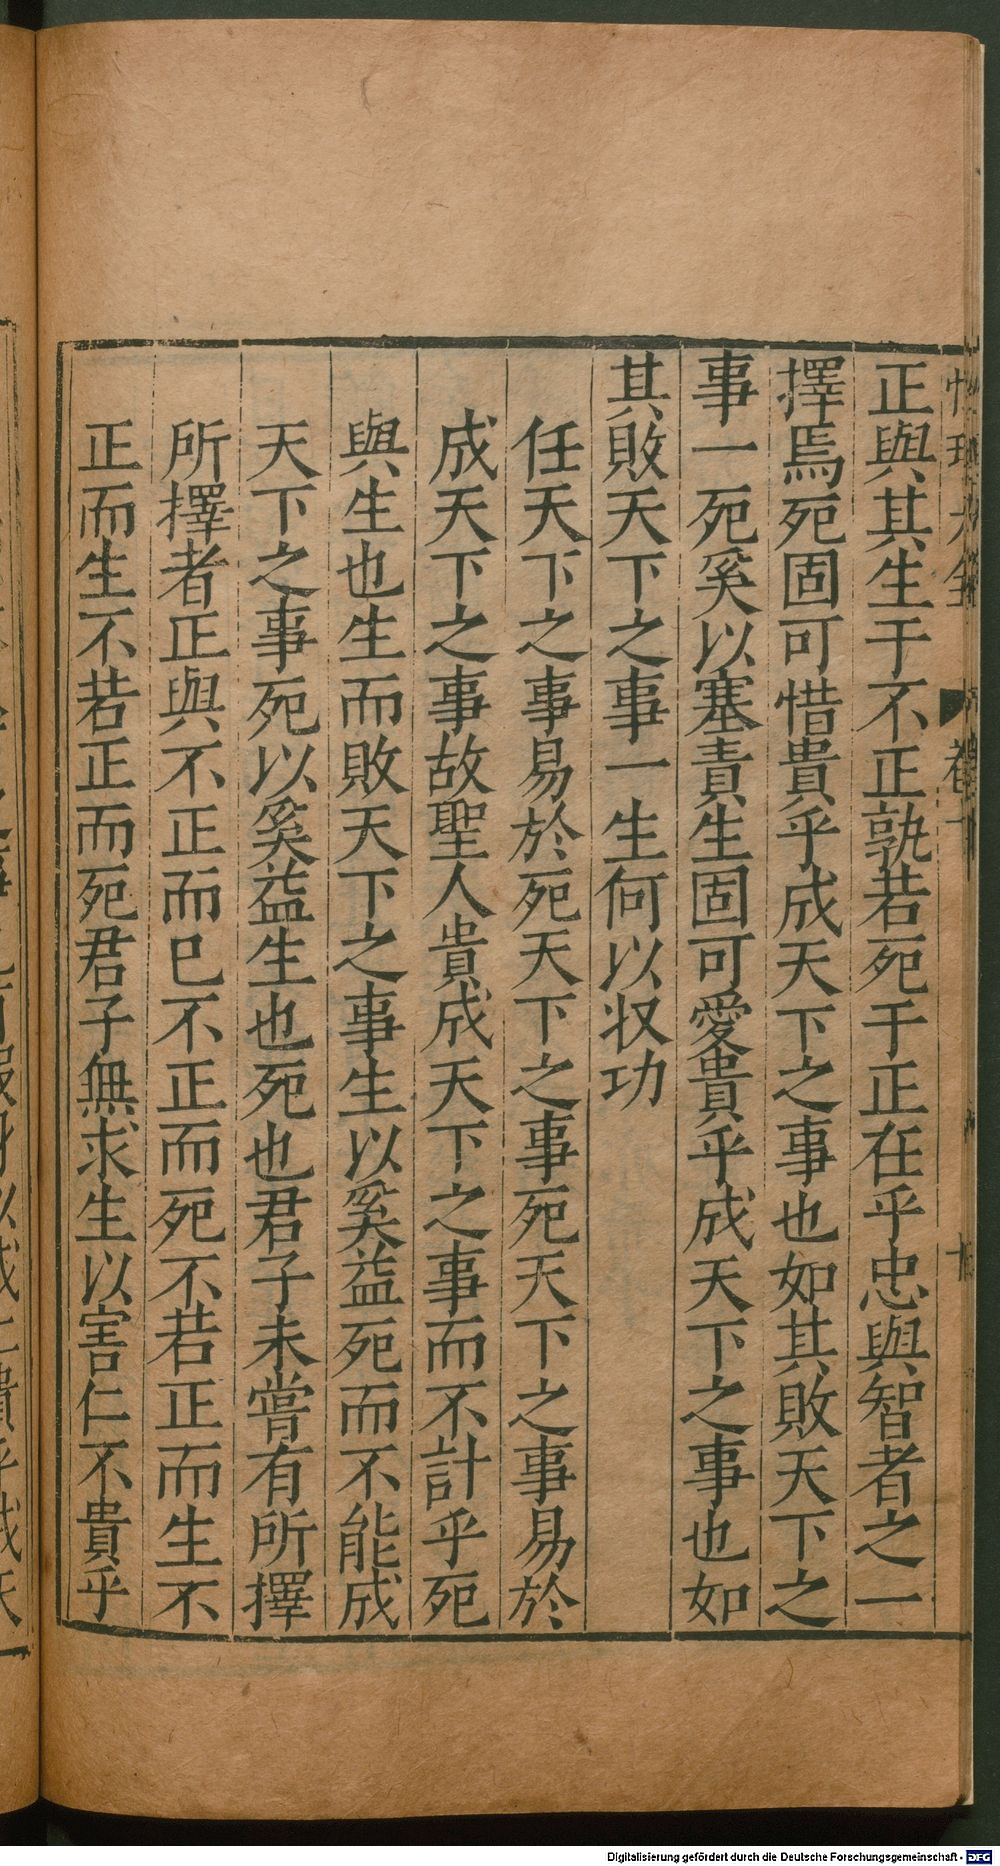 正與其生于不正孰若死于正在乎忠與智者之一
擇焉死固可惜貴乎成天下之事也如其敗天下之
事一死奚以塞責生固可愛貴乎成天下之事也如
其敗天下之事一生何以収功
任天下之事易於死天下之事死天下之事易於
成天下之事故聖人貴成天下之事而不計乎死
與生也生而敗天下之事生以奚益死而不能成
天下之事死以奚益生也死也君子未嘗有所擇
所擇者正與不正而巳不正而死不若正而生不
正而生不若正而死君子無求生以害仁不貴乎
Digitalisierung gefördert durch die Deutsche Forschungsgemeinschaft - DFG